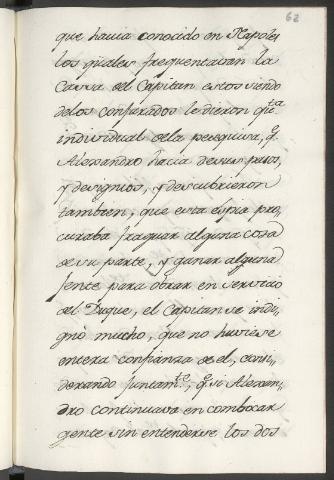 62
que havia conocido en Napoles
los quales frequentavan la
Cassa del Capitan estos siendo
delos conjurados le dieron q.ta
individual dela pesquisa, q.
Alexandro hacia de sus pasos,
y designios, y descubrieron
tambien, que esta espia pro,
curaba fraguar alguna cosa
de su parte, y ganar alguna
gente para obrar en servicio
del Duque, el Capitan se indi,
gnò mucho, que no huviese
entera confianza de el, consi,
derando juntam.te, q. si Alexan,
dro continuava en combocar
gente sin entenderse los dos